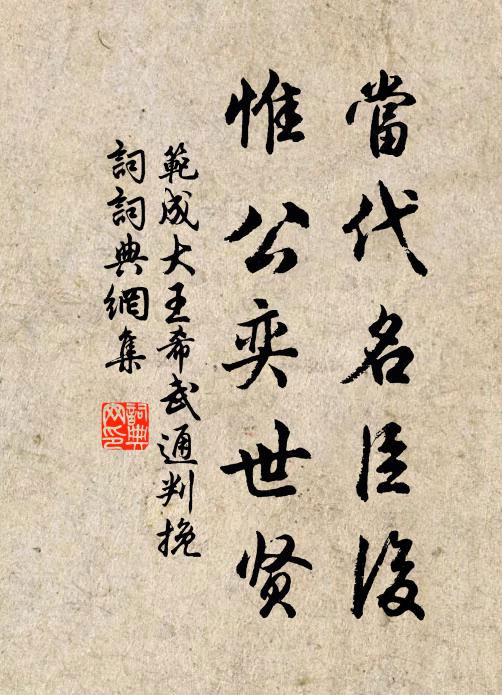 當代名臣後
惟公奕世贤
範成大王希武通判挽
詞詞典網集
詞典网印